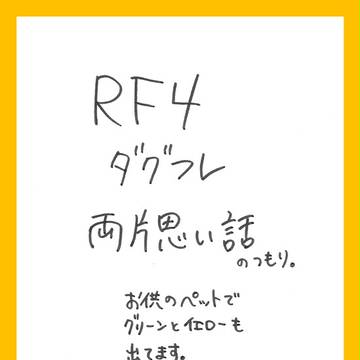 RF4
ダグフレ
両片思い話
のつもり。
お供のペットで
グリーンとイエローも
出てます。